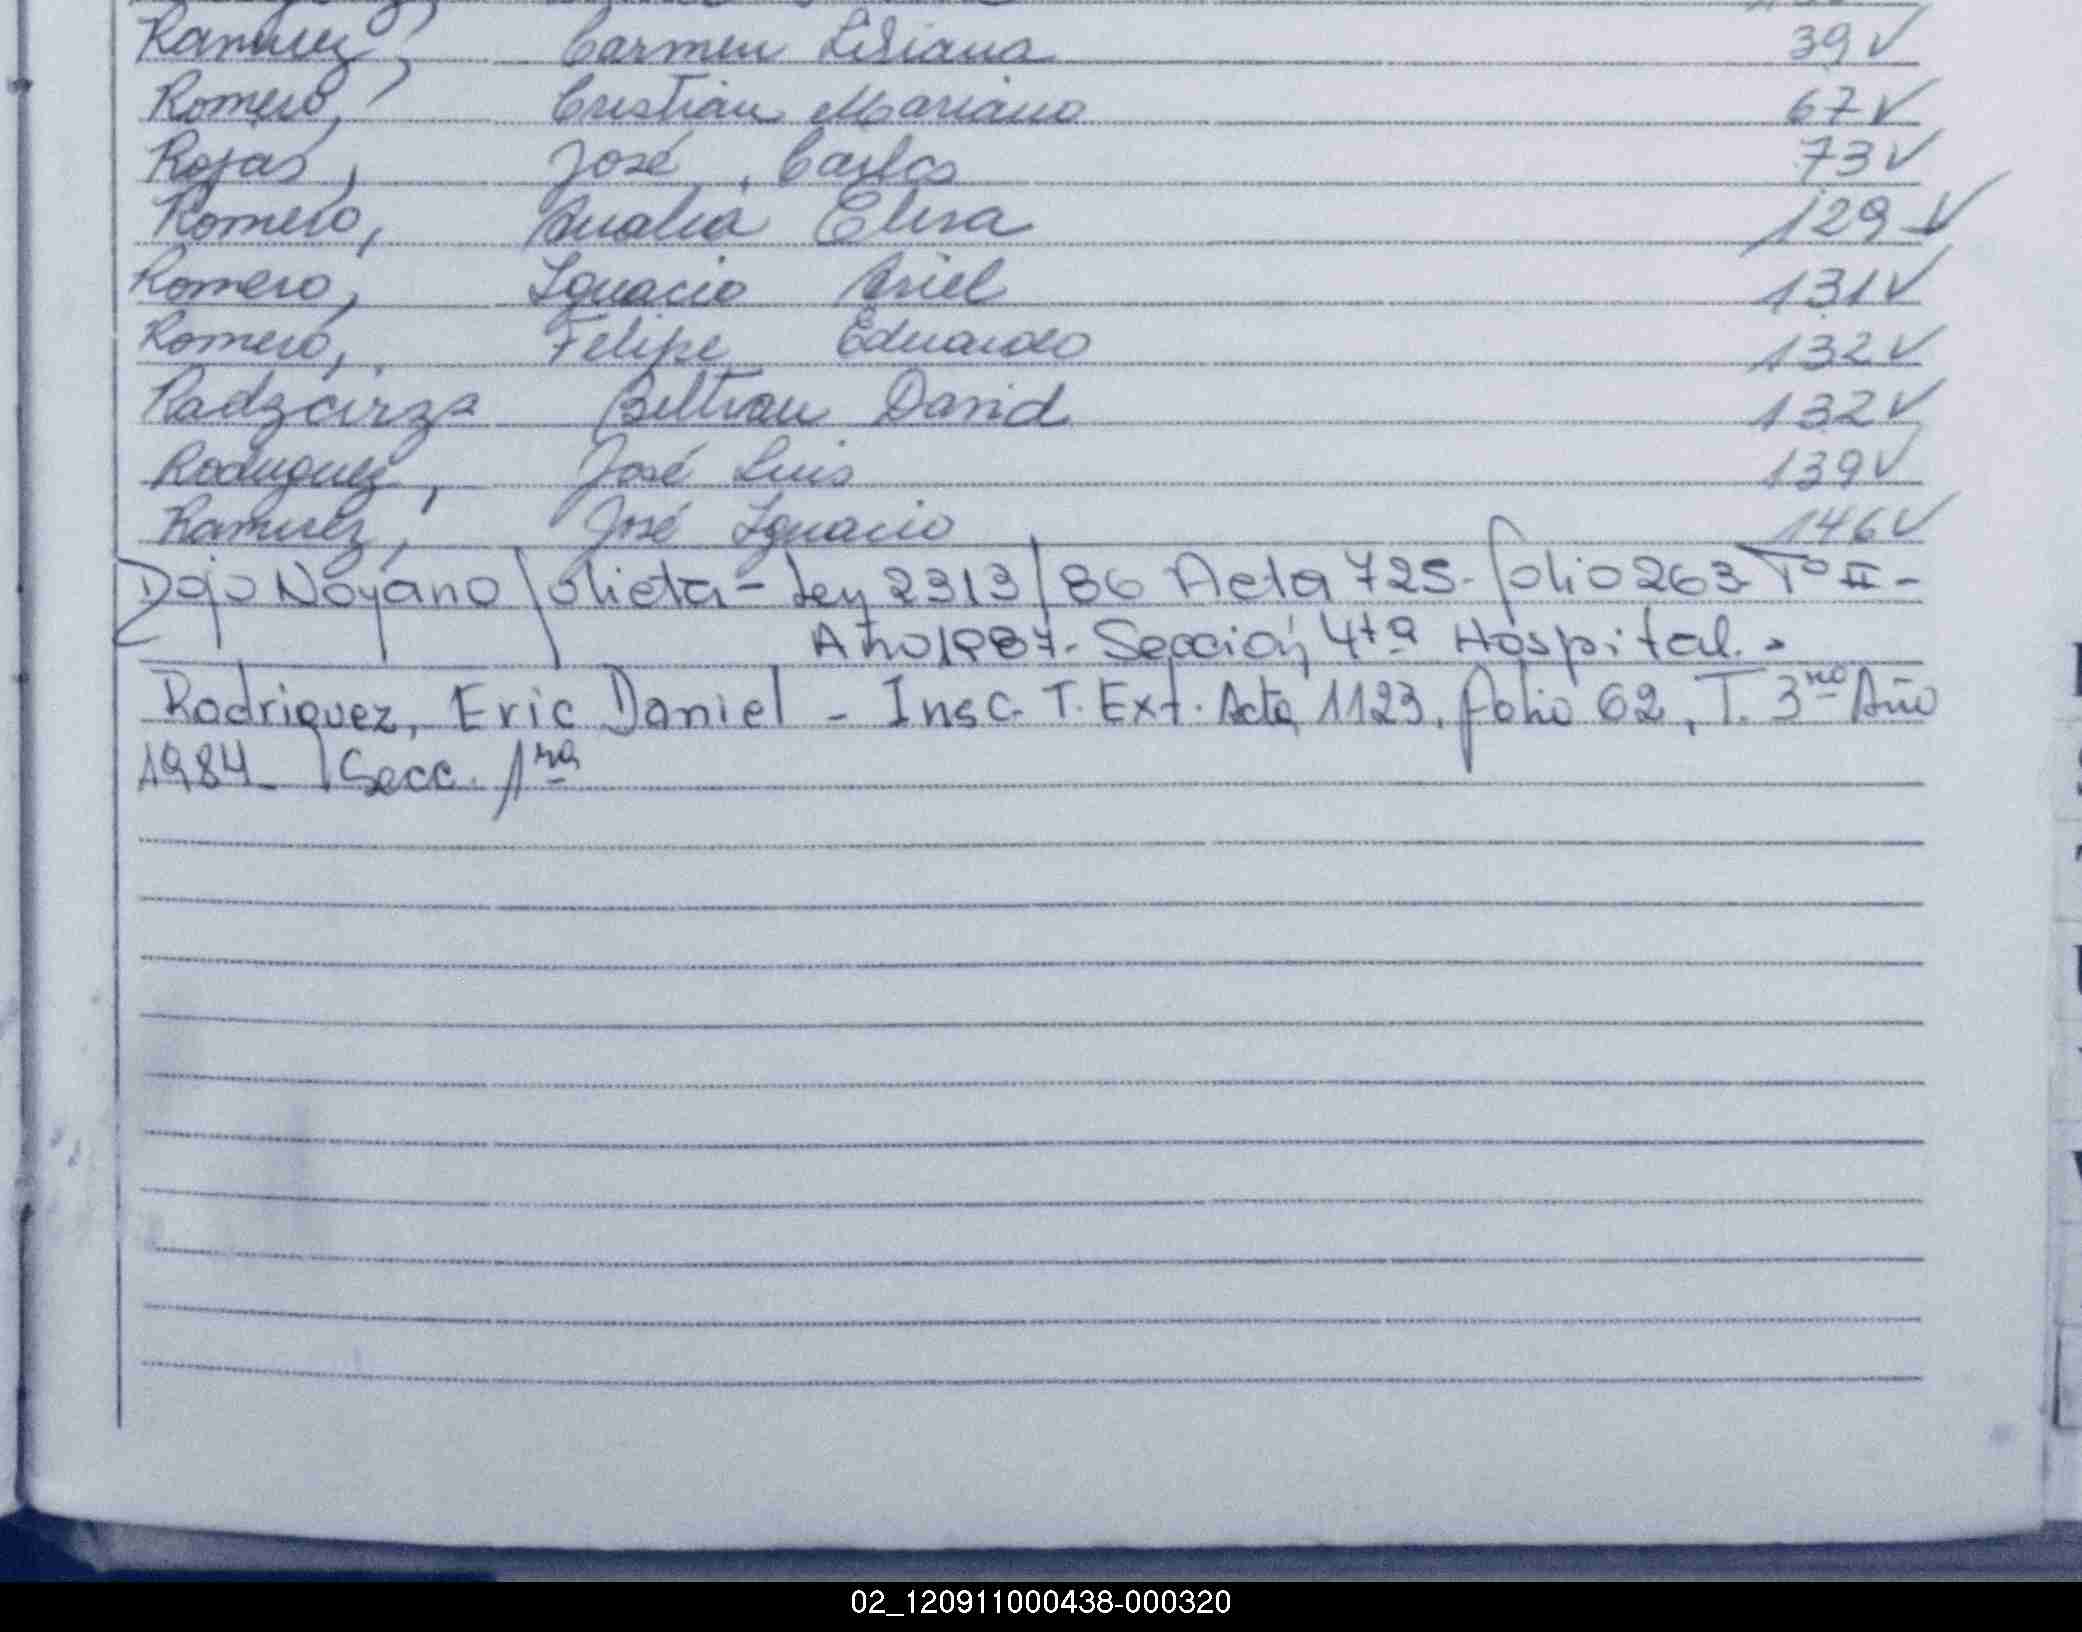 Ramirez, Carmen Liliana 39 ✓
Romero, Cristian Mariano 67 ✓
Rojas, José Carlos 73 ✓
Romero, Analia Elisa 129 ✓
Romero, Ignacio Ariel 131 ✓
Romero, Felipe Eduardo 132 ✓
Beltrau David 132 ✓
Rodriguez, José Luis 139 ✓
Ramirez, José Ignacio 146 ✓
Julieta - Ley 2313/86 Acta 725 - folio 263 Tº II -
Año 1987 - Sección 4ta Hospital. -
Rodriguez, Eric Daniel - Insc. T. Ext. Acta 1123, folio 62, T. 3ro Año
1984 Secc. 1ra
02_120911000438-000320